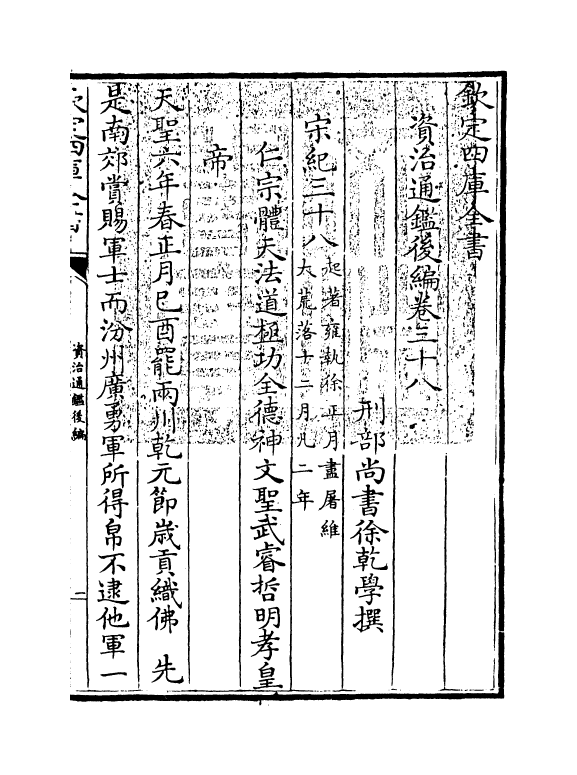 欽定四庫全書
資治通鑑後編卷三十八
刑部尚書徐乾學撰
宋紀三十八起著雍執徐正月盡屠維
大荒落十二月凡二年
仁宗體天法道極功全德神文聖武睿哲明孝皇
帝
天聖六年春正月己酉罷兩川乾元節歲貢織佛 先
是南郊賞賜軍士而汾州廣勇軍所得帛不逮他軍一
資治通鑑後編
一